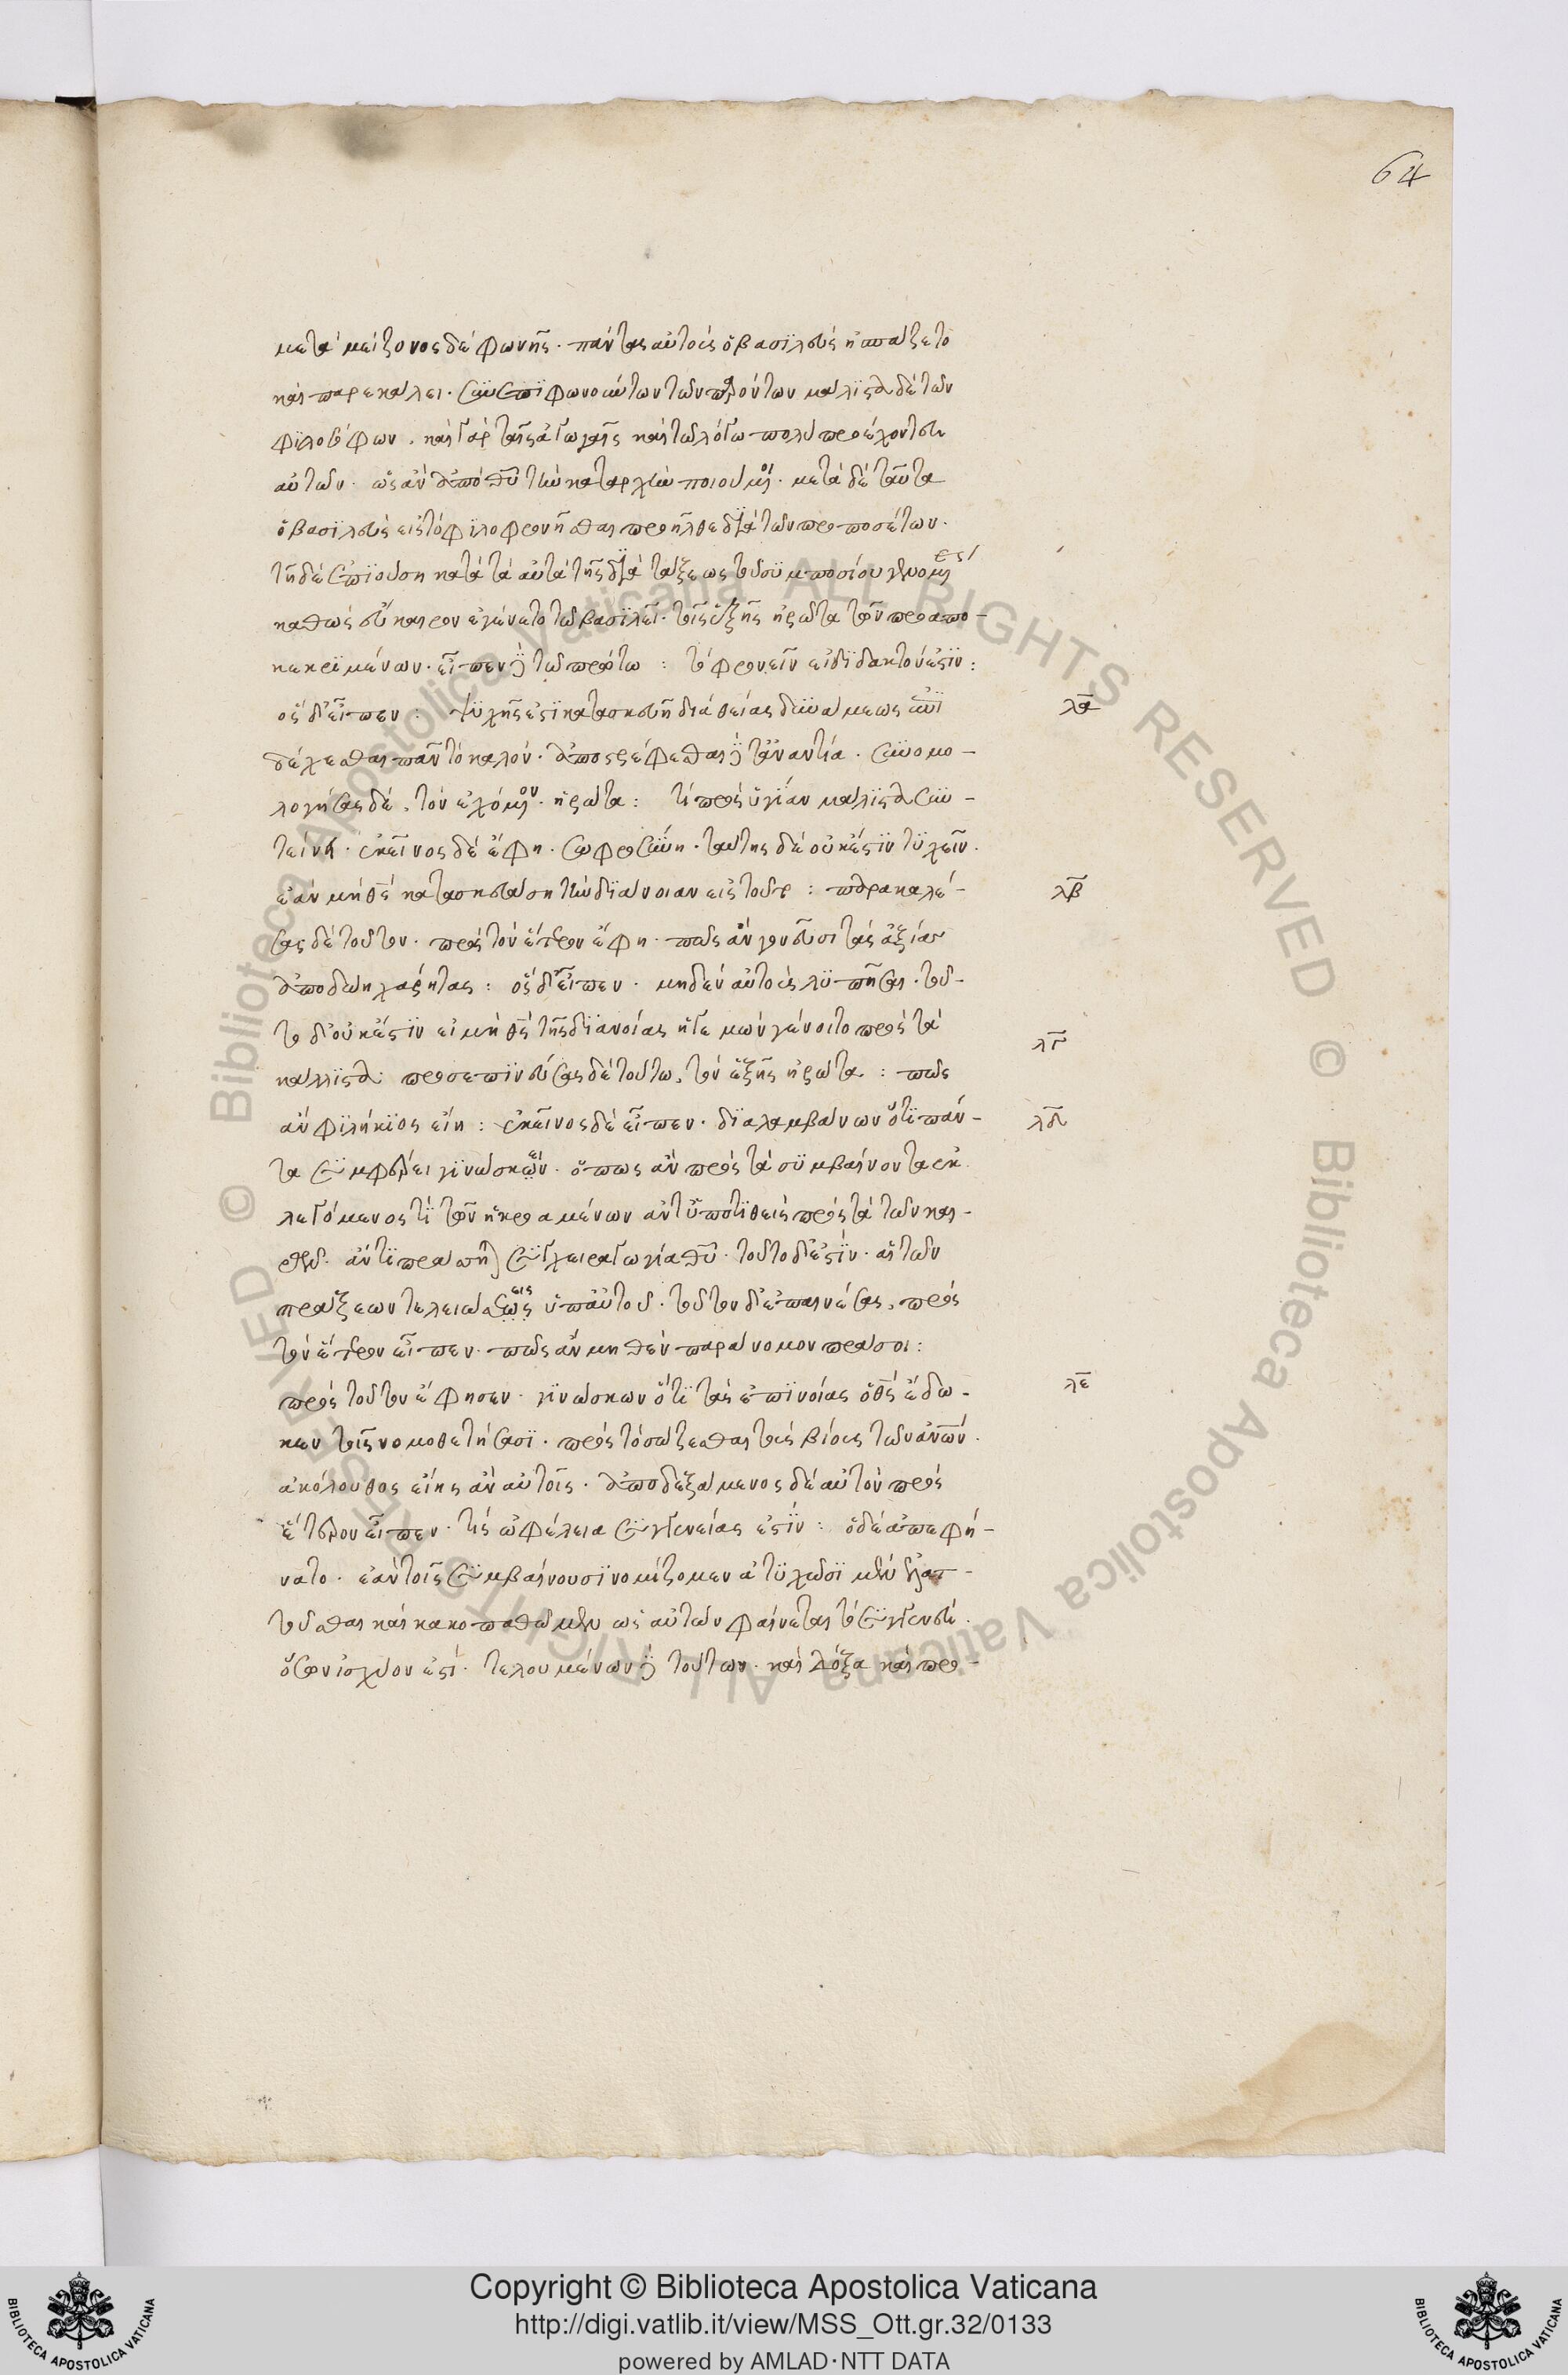 64
μετὰ μείζονος δὲ φωνῆς. πάντας αὐτοὺς ὁ βασϊλεὺς ἠσπάζετο
καὶ παρεκάλει. συνεπϊφωνούντων τῶν παρόντων μάλϊστα δὲ τῶν
φϊλοσόφων. καὶ γὰρ ταῖς ἀγωγαῖς καὶ τῶ λόγω πολὺ προέχοντες
αὐτῶν. ὡς ἂν ἀπὸ θῦ τὴν καταρχὴν ποιούμοι. μετὰ δὲ ταῦτα
ὁ βασϊλεὺς εἰς τὸ φϊλοφρονῆσθαι προῆλθε δϊὰ τῶν προποσέτων.
τῆ δὲ ἐπϊούση κατὰ τὰ αὐτὰ τῆς δϊὰ τάξεως τοῦ σϋμποσίου γενομης
καθὼς εὔκαιρον ἐγένετο τῶ βασϊλεῖ. τοῖς ἑξῆς ἠρώτα τῶν προαπο-
κεκρϊμένων. εἶπεν δὲ τῶ πρώτω: τὸ φρονεῖν εἰ δϊδακτόν ἐστϊν:
ὃς δ' εἶπεν: ψϋχῆς ἐστϊ κατασκευὴ διὰ θείας δϋνάμεως
λα
δέχεσθαι πᾶν τὸ καλόν. ἀποστρέφεσθαι δὲ τἀναντία. σϋνομο-
λογήσας δὲ, τὸν ἐχόμον. ἠρώτα: τί πρὸς ὑγίαν μάλϊστα σϋν-
τείνει. ἐκεῖνος δὲ ἔφη. σωφροσύνη. ταύτης δὲ οὐκ ἔστϊν τϋχεῖν.
ἐὰν μὴ θς κατασκευάση τὴν δϊάνοιαν εἰς τοῦτο: παρακαλέ-
λβ
σας δὲ τοῦτον. πρὸς τὸν ἕτερον ἔφη. πῶς ἂν γονεῦσι τὰς ἀξίας
ἀποδώη χάριτας: ὃς δ' εἶπεν. μηδὲν αὐτοὺς λϋπῆσαι. τοῦ-
το δ' οὐκ ἔστϊν εἰ μὴ θς τῆς δϊανοίας ἡγεμὼν γένοιτο πρὸς τὰ
λγ
κάλλϊστα: προσεπϊνεύσας δὲ τούτω, τὸν ἑξῆς ἠρώτα: πῶς
ἂν φϊλήκϊος εἴη: ἐκεῖνος δὲ εἶπεν. δϊαλαμβάνων ὅτϊ πάν-
λδ
τα σϋμφέρει γϊνώσκειν. ὅπως ἂν πρὸς τὰ σϋμβαίνοντα ἐκ
λεγόμενός τϊ τῶν ἠκροαμένων ἀνθϋποτϊθεὶς πρὸς τὰ τῶν και-
ρῶν. ἀντϊπράσση σὺν χειραγωγία θῦ. τοῦτο δ' ἐστϊν. αἱ τῶν
πράξεων τελειώσεις ὑπ' αὐτοῦ. τοῦτον δ' ἐπαινέσας, πρὸς
τὸν ἕτερον εἶπεν. πῶς ἂν μηθὲν παράνομον πράσσοι:
πρὸς τοῦτον ἔφησεν. γϊνώσκων ὅτϊ τὰς ἐπϊνοίας ὁ θς ἔδω-
λε
κεν τοῖς νομοθετήσασϊ. πρὸς τὸ σώζεσθαι τοὺς βίους τῶν ἀνων.
ἀκόλουθος εἴης ἂν αὐτοῖς. ἀποδεξάμενος δὲ αὐτὸν πρὸς
ἕτερον εἶπεν. τίς ὠφέλεια σϋγγενείας ἐστϊν: ὁ δὲ ἀπεφή-
νατο. ἐὰν τοῖς σϋμβαίνουσϊ νομίζομεν ἀτϋχοῦσϊ μὲν ἐλατ-
τοῦσθαι καὶ κακοπαθῶμεν ὡς αὐτῶν φαίνεται τὸ σϋγγενὲς.
ὅσον ἰσχῦόν ἐστι. τελουμένων δὲ τούτων. καὶ δόξα καὶ προ-
Copyright © Biblioteca Apostolica Vaticana
http://digi.vatlib.it/view/MSS_Ott.gr.32/0133
powered by AMLAD·NTT DATA